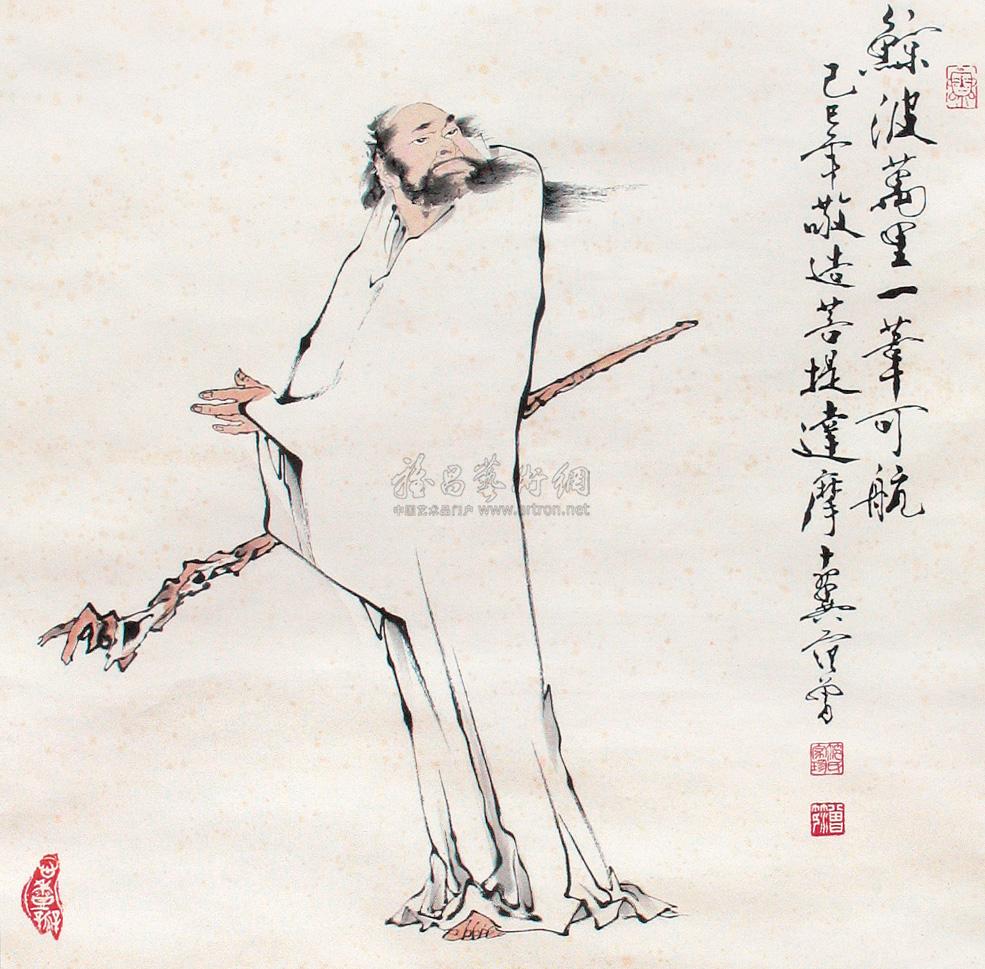 鯨波萬里一葦可航
己巳年敬造菩提達摩十翼范曾
雅昌藝術網
中国艺术品门户 www.artron.net